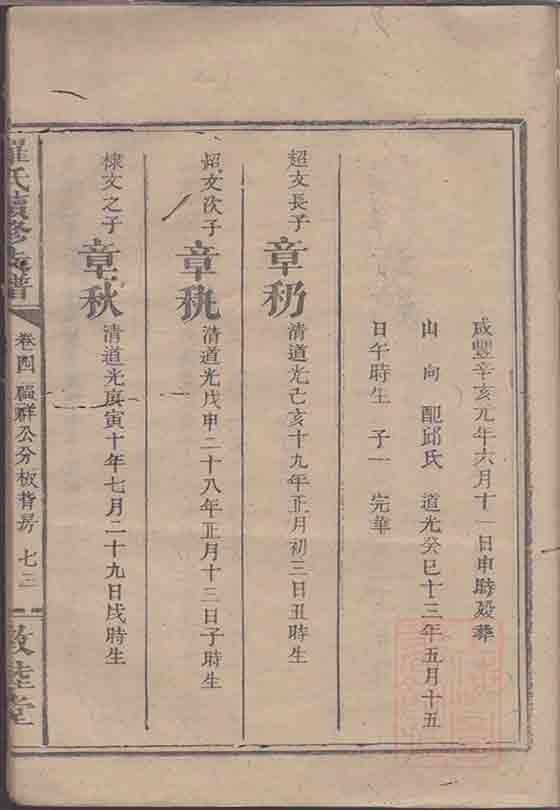 咸豐辛亥元年六月十一日申時殁葬
山向 配邱氏 道光癸巳十三年五月十五
日午時生 子一 完華
超文長子 章礽 清道光己亥十九年正月初三日丑時生
炤文次子 章秇 清道光戊申二十八年正月十三日子時生
棣文之子 章秋 清道光庚寅十年七月二十九日戌時生
羅氏續修族譜 卷四 福群公分板背房 七三 敦睦堂